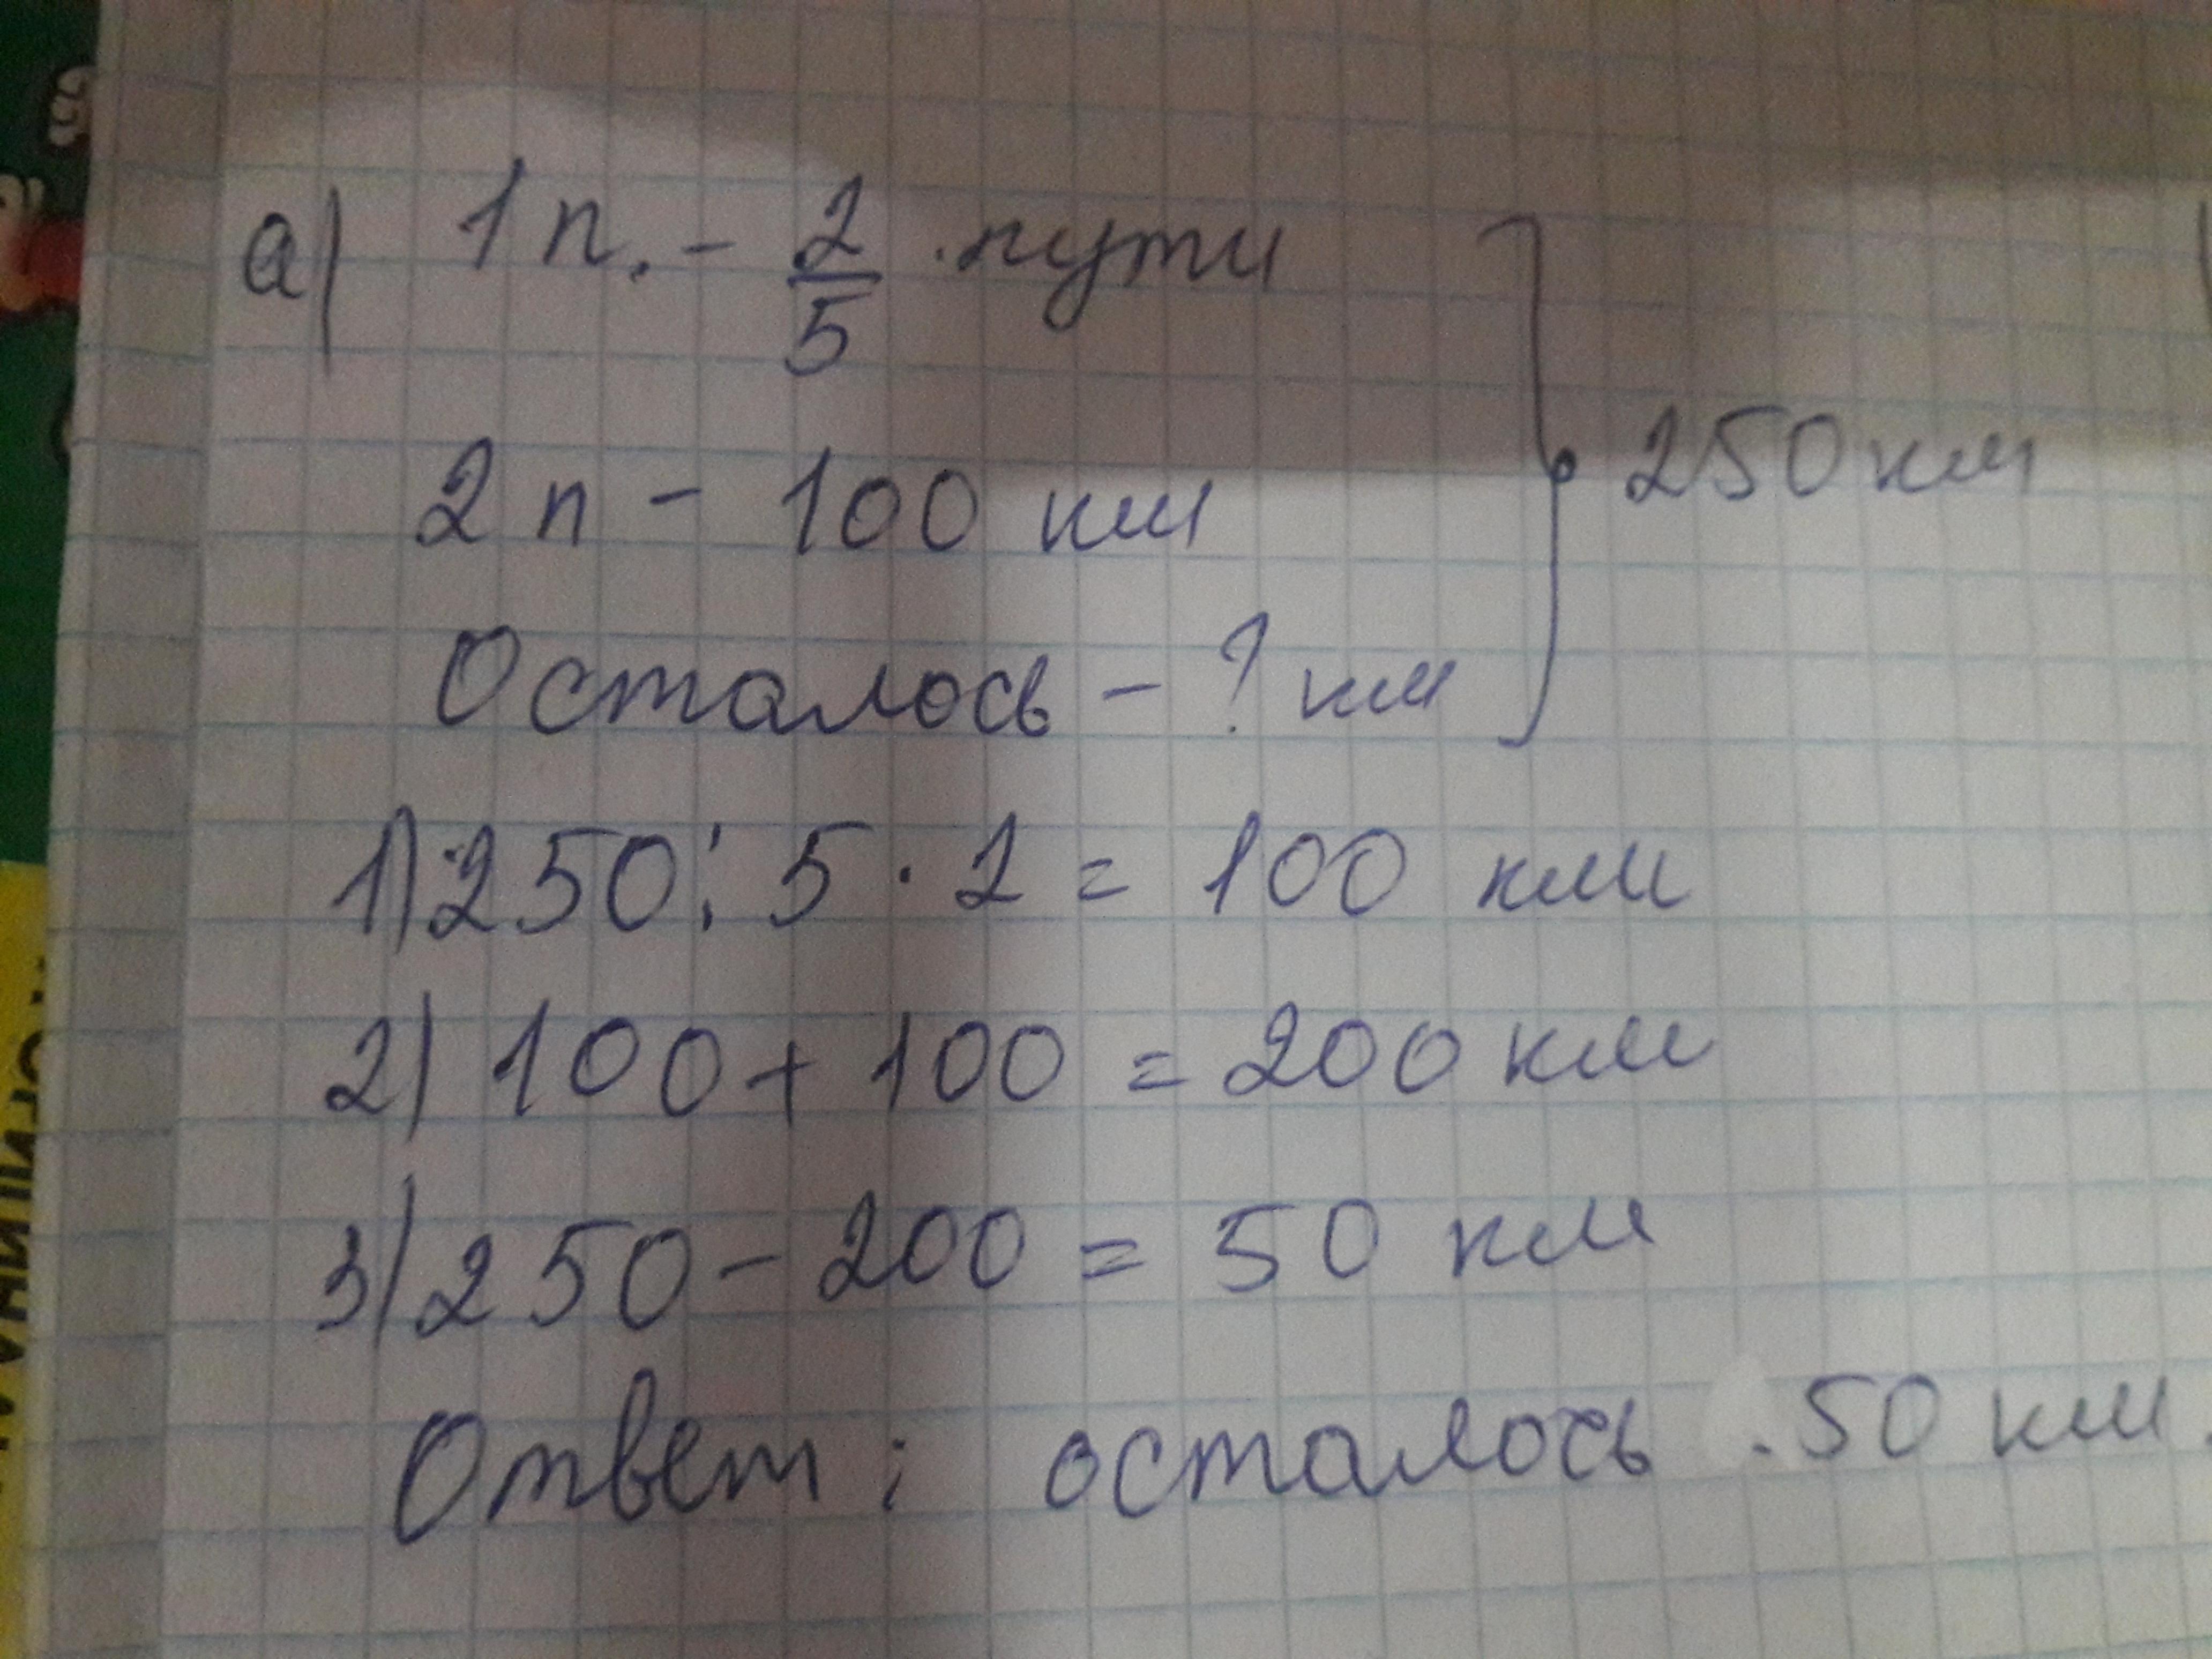 а) 1 п. - 2/5 пути
2 п - 100 км
250 км
Осталось - ? км
1) 250 : 5 · 2 = 100 км
2) 100 + 100 = 200 км
3) 250 - 200 = 50 км
Ответ: осталось 50 км.